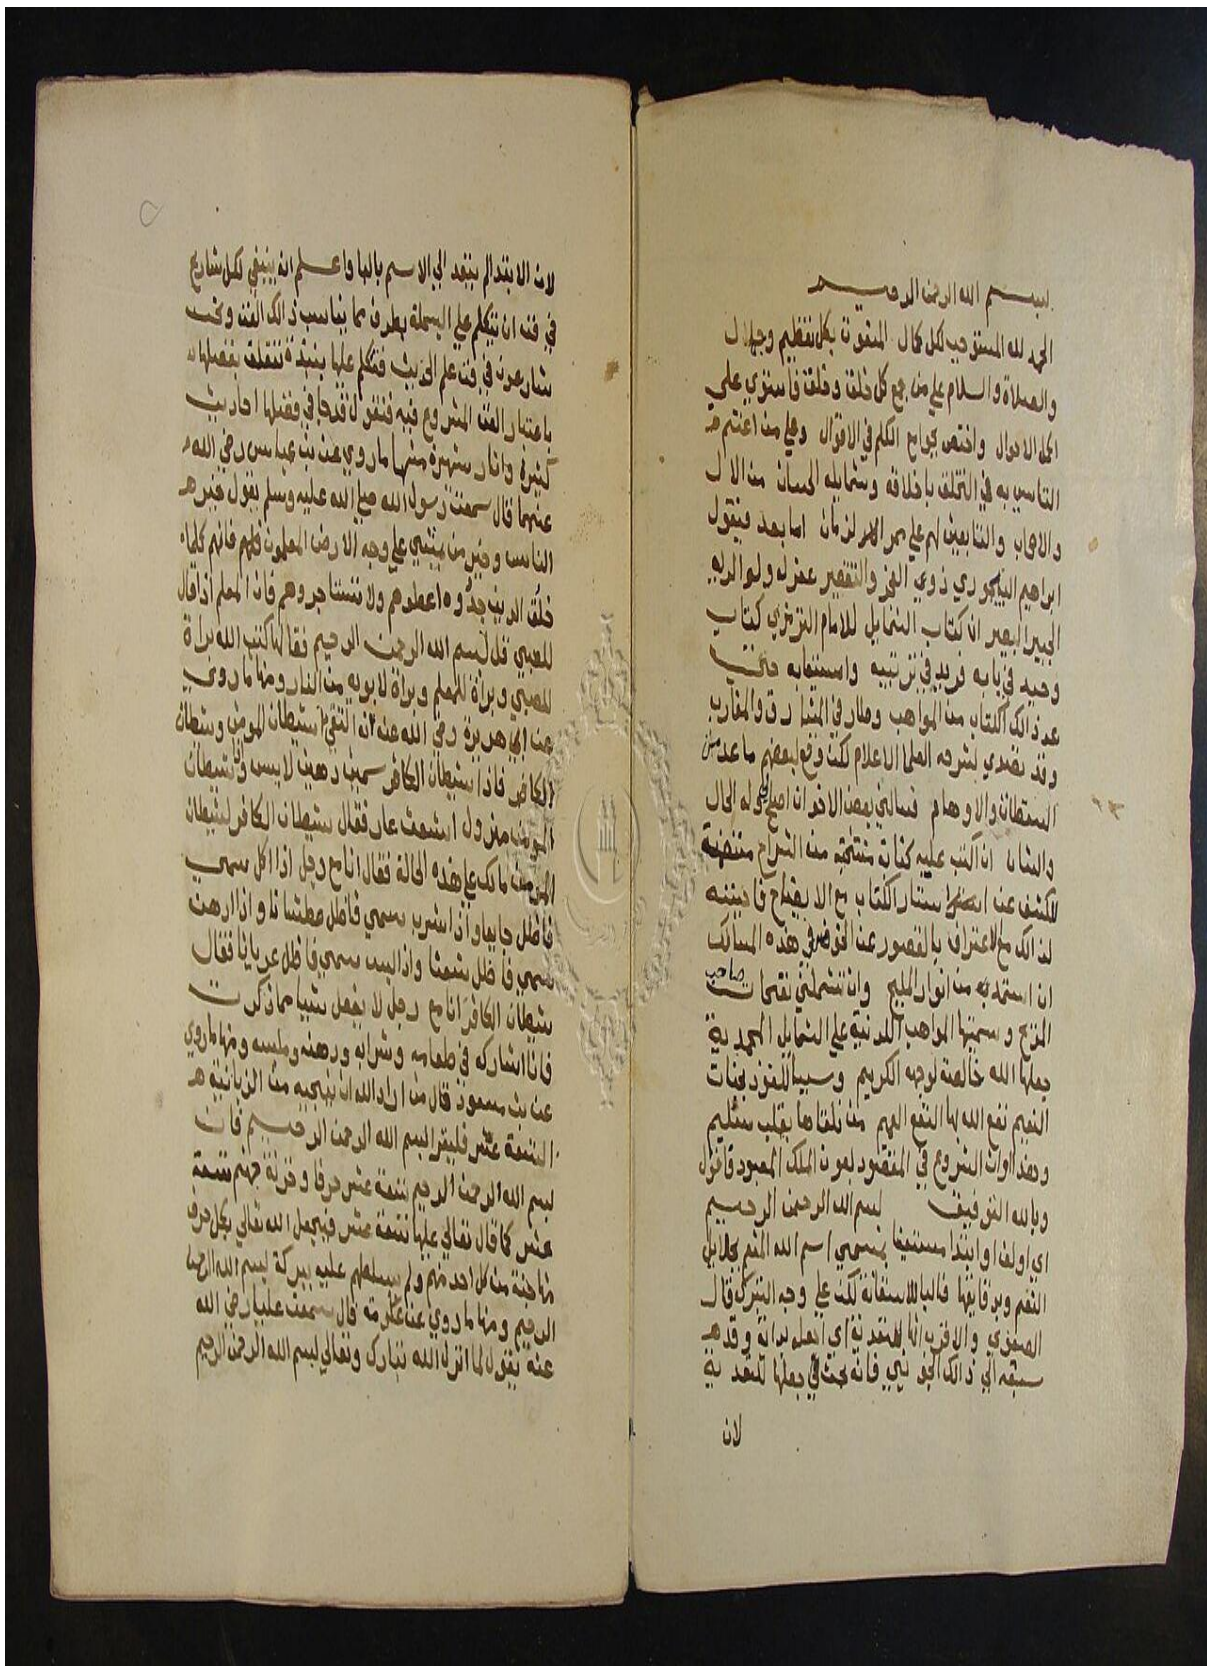 بسم الله الرحمن الرحيم
الحمد لله المستوجب لكل كمال المنعوت بكل تعظيم وجلال
والصلاة والسلام علي من جمع كل خلق وخلق فاستوي علي
اكمل الاحوال واختص بجوامع الكلم في الاقوال وعلي من اعتنم
التاسي به في التخلق باخلاقه وشمايله الحسان من الال
والاصحاب والتابعين لهم علي ممر الازمان اما بعد فيقول
ابراهيم البيجوري ذوي العجز والتقصير غفر له ولوالديه
الخبير البصير ان كتاب الشمايل للامام الترمذي كتاب
وحيد في بابه فريد في ترتيبه واستيعابه حتي
عد ذالك الكتاب من المواهب وطار في المشارق والمغارب
وقد تصدي لشرحه العلما الاعلام لكن وقع لبعضهم ما عد من
السقطات والاوهام فسالني بعض الاخوان اصلح لي وله الحال
والشان ان اكتب عليه كتابة منتخبة من الشراح متضمنة
للكشف عن استار الكتاب مع الايضاح فاجبته
لذالك مع الاعتراف بالقصور عن الخوض في هذه المسالك
ان استمد به من انوار المليح وان تشملني نفحات صاحب
المديح وسميتها المواهب اللدنية علي الشمايل المحمدية
جعلها الله خالصة لوجهه الكريم وسببا للفوز بجنات
النعيم نفع الله بها النفع العميم من تلقاها بقلب سليم
وهذا اوان الشروع في المقصود بعون الملك المعبود فاقول
وبالله التوفيق بسم الله الرحمن الرحيم
اي اولف او ابتدا مستعينا بمسمي اسم الله المنعم بجلايل
النعم وبدقايقها فالبا للاستعانة لكن علي وجه التبرك قال
الصفوي والاقرب انها للتعدية اي اجعله بداة وقد
سبقه الي ذالك الجويني فانه بحث في جعلها للتعدية
لان
لان الابتدا لم يتعد الي الاسم بالبا واعلم انه ينبغي لكل شارع
في فن ان يتكلم علي البسملة بطرف مما يناسب ذالك الفن ونحن
شارعون في فن علم الحديث فنتكلم عليها بنبذة تتعلق بفضلها
باعتبار الفن المشروع فيه فنقول قد جا في فضلها احاديث
كثيرة واثار شهيرة منها ما روي عن بن عباس رضي الله
عنهما قال سمعت رسول الله صلي الله عليه وسلم يقول خير
الناس وخير من يمشي علي وجه الارض المعلمون فانهم كلما
خلق الدين جددوه اعطوهم ولا تستاجروهم فان المعلم اذا قال
للصبي قل بسم الله الرحمن الرحيم فقالها كتب الله براة
للصبي وبراة للمعلم وبراة لابويه من النار ومنها ما روي
عن ابي هريرة رضي الله عنه انه التقي شيطان المومن وشيطان
الكافر فاذا شيطان الكافر سمين دهين لابس واذا شيطان
المومن مهزول اشعث عار فقال شيطان الكافر لشيطان
المومن مالك علي هذه الحالة فقال انا مع رجل اذا اكل سمي
فاظل جايعا واذا شرب سمي فاظل عطشانا واذا ادهن
سمي فاظل شعثا واذا لبس سمي فاظل عريانا فقال
شيطان الكافر انا مع رجل لا يفعل شيا مما ذكرت
فانا اشاركه في طعامه وشرابه ودهنه وملبسه ومنها ما روي
عن بن مسعود قال من اراد الله ان ينجيه من الزبانية
التسعة عشر فليقرا بسم الله الرحمن الرحيم فان
بسم الله الرحمن الرحيم تسعة عشر حرفا وخزنة جهنم تسعة
عشر كما قال تعالي عليها تسعة عشر فيجعل الله تعالي بكل حرف
منها جنة من كل احد منهم ولم يسلطهم عليه ببركة بسم الله الرحمن
الرحيم ومنها ما روي عن عكرمة قال سمعت عليا رضي الله
عنه يقول لما انزل الله تبارك وتعالي بسم الله الرحمن الرحيم